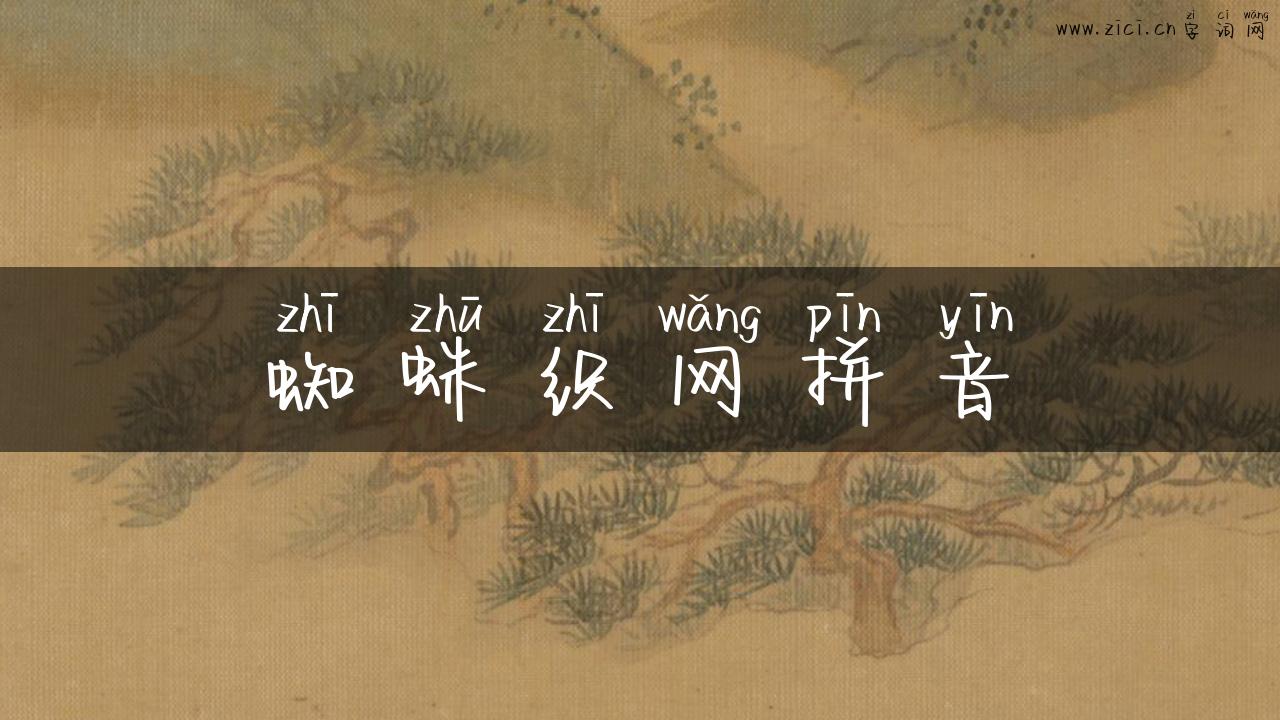 zì cí wǎng
www.zīcī.cn 字词网
zhī zhū zhī wǎng pīn yīn
蜘蛛织网拼音